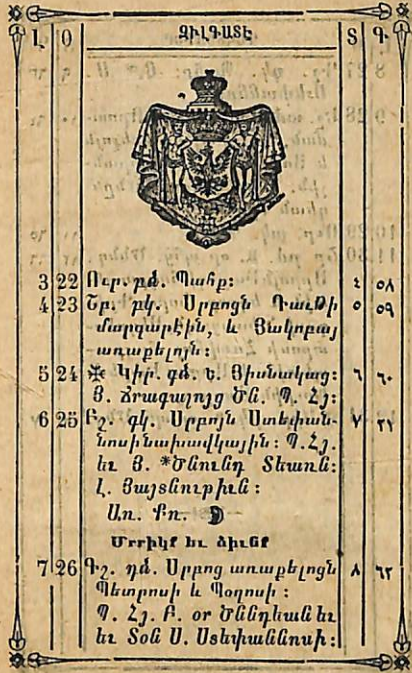 Լ Օ ԶԻԼԳԱՏԷ Տ Գ
3 22 Ուր. բձ. Պահք: ٤ ٥٨
4 23 Շբ. բկ. Սրբոցն Դաւթի ٥ ٥٩
մարգարէին, և Յակոբայ
առաքելոյն:
5 24 ✠ Կիր. գձ. Ե. Յիսնակաց: ٦ ٦٠
Յ. Ճրագալոյց Ծն. Պ. Հյ:
6 25 Բշ. գկ. Սրբոյն Ստեփան- ٧ ٦١
նոսի նախավկային: Պ. Հյ.
եւ Յ. *Ծնունդ Տեառն:
Լ. Յայտնութիւն:
Առ. Քռ.
Մրրիկք եւ ձիւնք
7 26 Գշ. դձ. Սրբոց առաքելոցն ٨ ٦٢
Պետրոսի և Պօղոսի:
Պ. Հյ. Բ. օր Ծննդեան եւ
եւ Տօն Ս. Ստեփաննոսի: